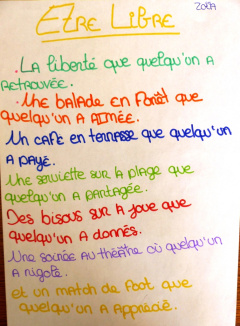 Etre Libre
.La liberté que quelqu'un a
retrouvée.
.Une balade en forêt que
quelqu'un a aimée.
Un café en terrasse que quelqu'un
a payé.
Une serviette sur la plage que
quelqu'un a partagée.
Des bisous sur la joue que
quelqu'un a donnés.
Une soirée au théâtre où quelqu'un
a rigolé.
et un match de foot que
quelqu'un a apprécié.